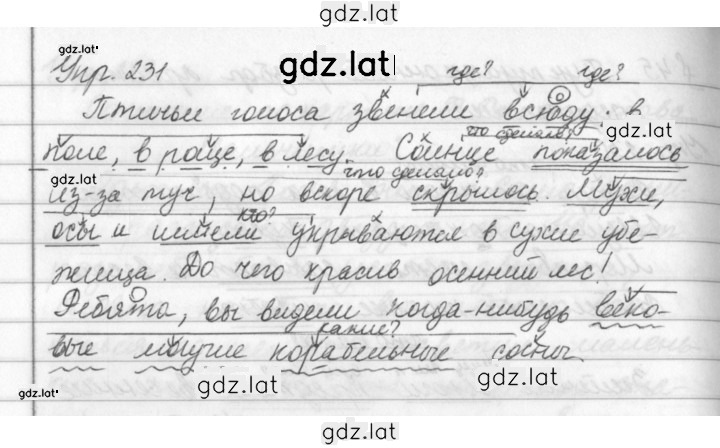 gdz.lat
gdz.lat
Упр. 231
gdz.lat
где? где?
Птичьи голоса звенели всюду: в
gdz.lat
что сделало?
поле, в роще, в лесу. Солнце показалось
gdz.lat
что сделало?
из-за туч, но вскоре скрылось. Мухи,
кто?
осы и шмели укрываются в сухие убе-
жища. До чего красив осенний лес!
Ребята, вы видели когда-нибудь веко-
какие?
вые могучие корабельные сосны
gdz.lat
gdz.lat
gdz.lat